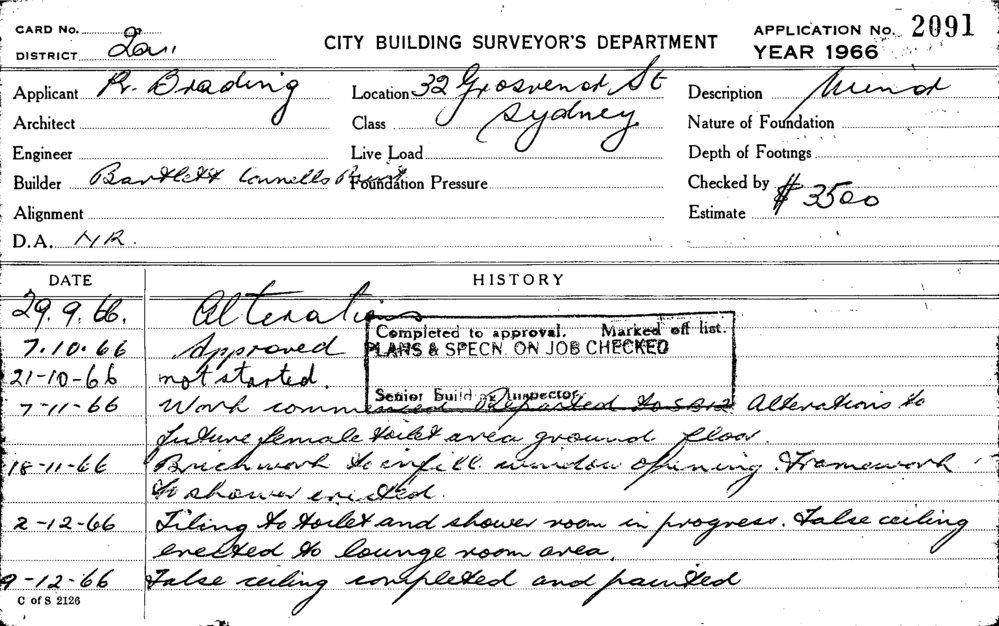 CARD No.
DISTRICT
CITY BUILDING SURVEYOR'S DEPARTMENT
APPLICATION No. 2091
YEAR 1966
Applicant R. Brading
Location 32 Grosvenor St
Sydney
Description Minor
Architect
Class
Nature of Foundation
Engineer
Live Load
Depth of Footings
Builder Bartlett Connells
Foundation Pressure
Checked by
Alignment
Estimate $3500
D.A. NR.
DATE HISTORY
29.9.66. Alterations
Completed to approval. Marked off list.
7.10.66 Approved
PLANS & SPECN. ON JOB CHECKED
21-10-66 not started.
Senior Building Inspector
7-11-66 Work commenced Alterations to
future female toilet area ground floor.
18-11-66 Brickwork to infill window opening. Framework
to shower erected.
2-12-66 Tiling to toilet and shower room in progress. False ceiling
erected to lounge room area.
9-12-66 False ceiling completed and painted
C of S 2126